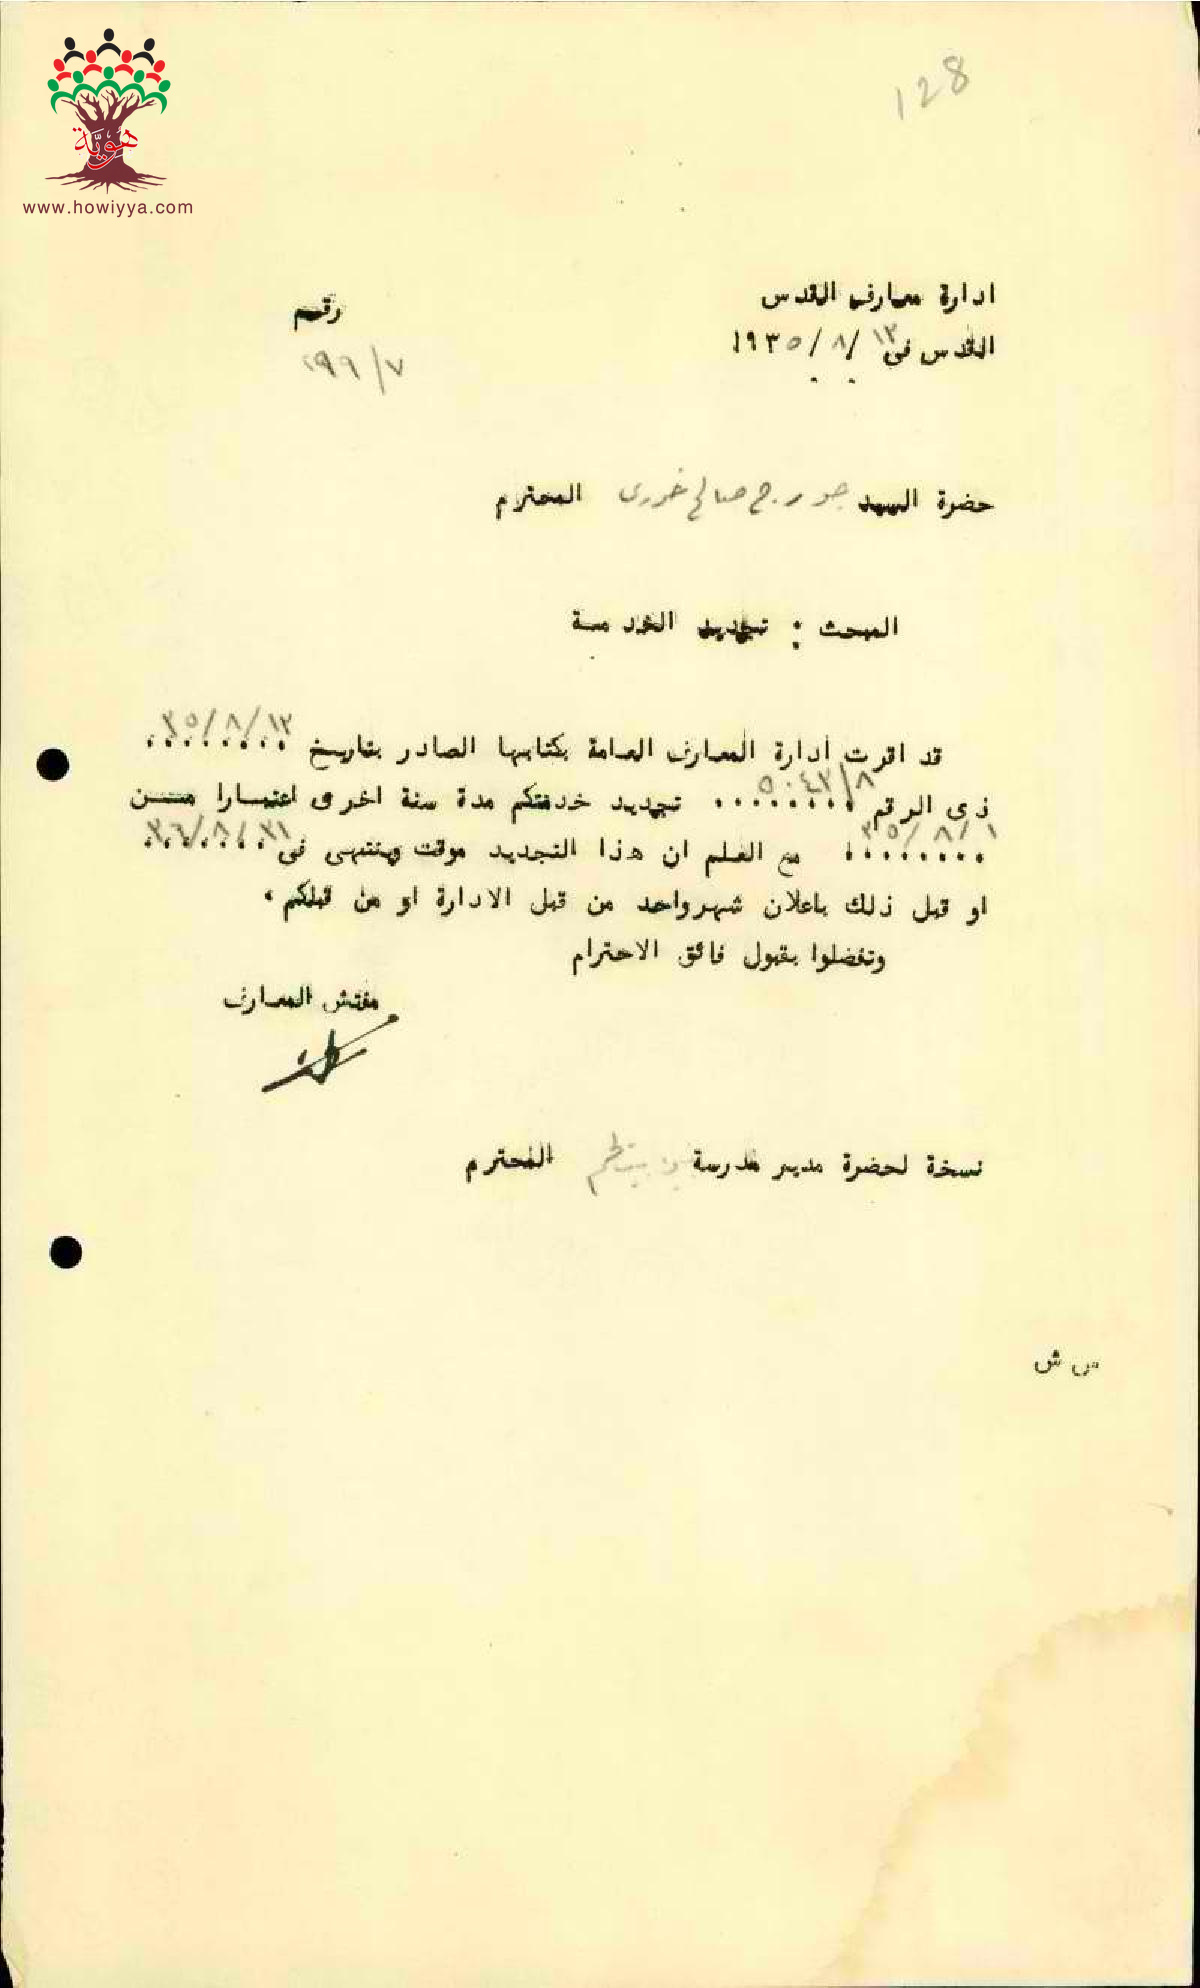 هوية
www.howiyya.com
128
ادارة معارف القدس
رقم
القدس فى ١٣/٨/١٩٣٥
٧/
حضرة السيد جورج صالح خورى المحترم
المبحث : تجديد الخدمة
قد اقرت ادارة المعارف العامة بكتابها الصادر بتاريخ ٣٥/٨/١٣
ذى الرقم ٥٠٤٣/٨ تجديد خدمتكم مدة سنة اخرى اعتبارا من
٣٥/٨/١ مع العلم ان هذا التجديد موقت وينتهى فى ٣٦/٨/٣١
او قبل ذلك باعلان شهر واحد من قبل الادارة او من قبلكم .
وتفضلوا بقبول فائق الاحترام
مفتش المعارف
نسخة لحضرة مدير مدرسة بيت لحم المحترم
س ش